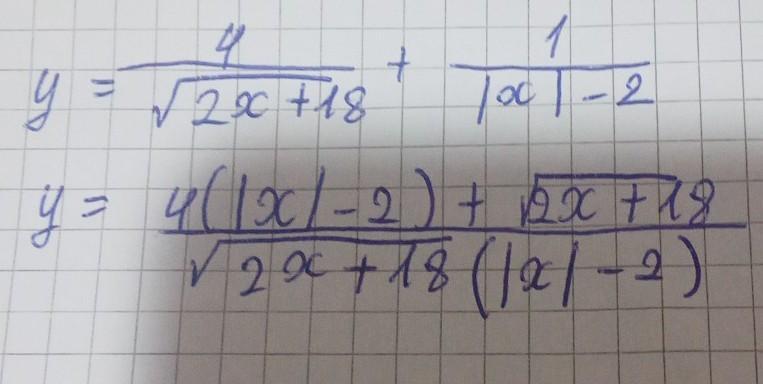 y = 4/√(2x+18) + 1/(|x|-2)
y = (4(|x|-2)+√(2x+18))/(√(2x+18)(|x|-2))